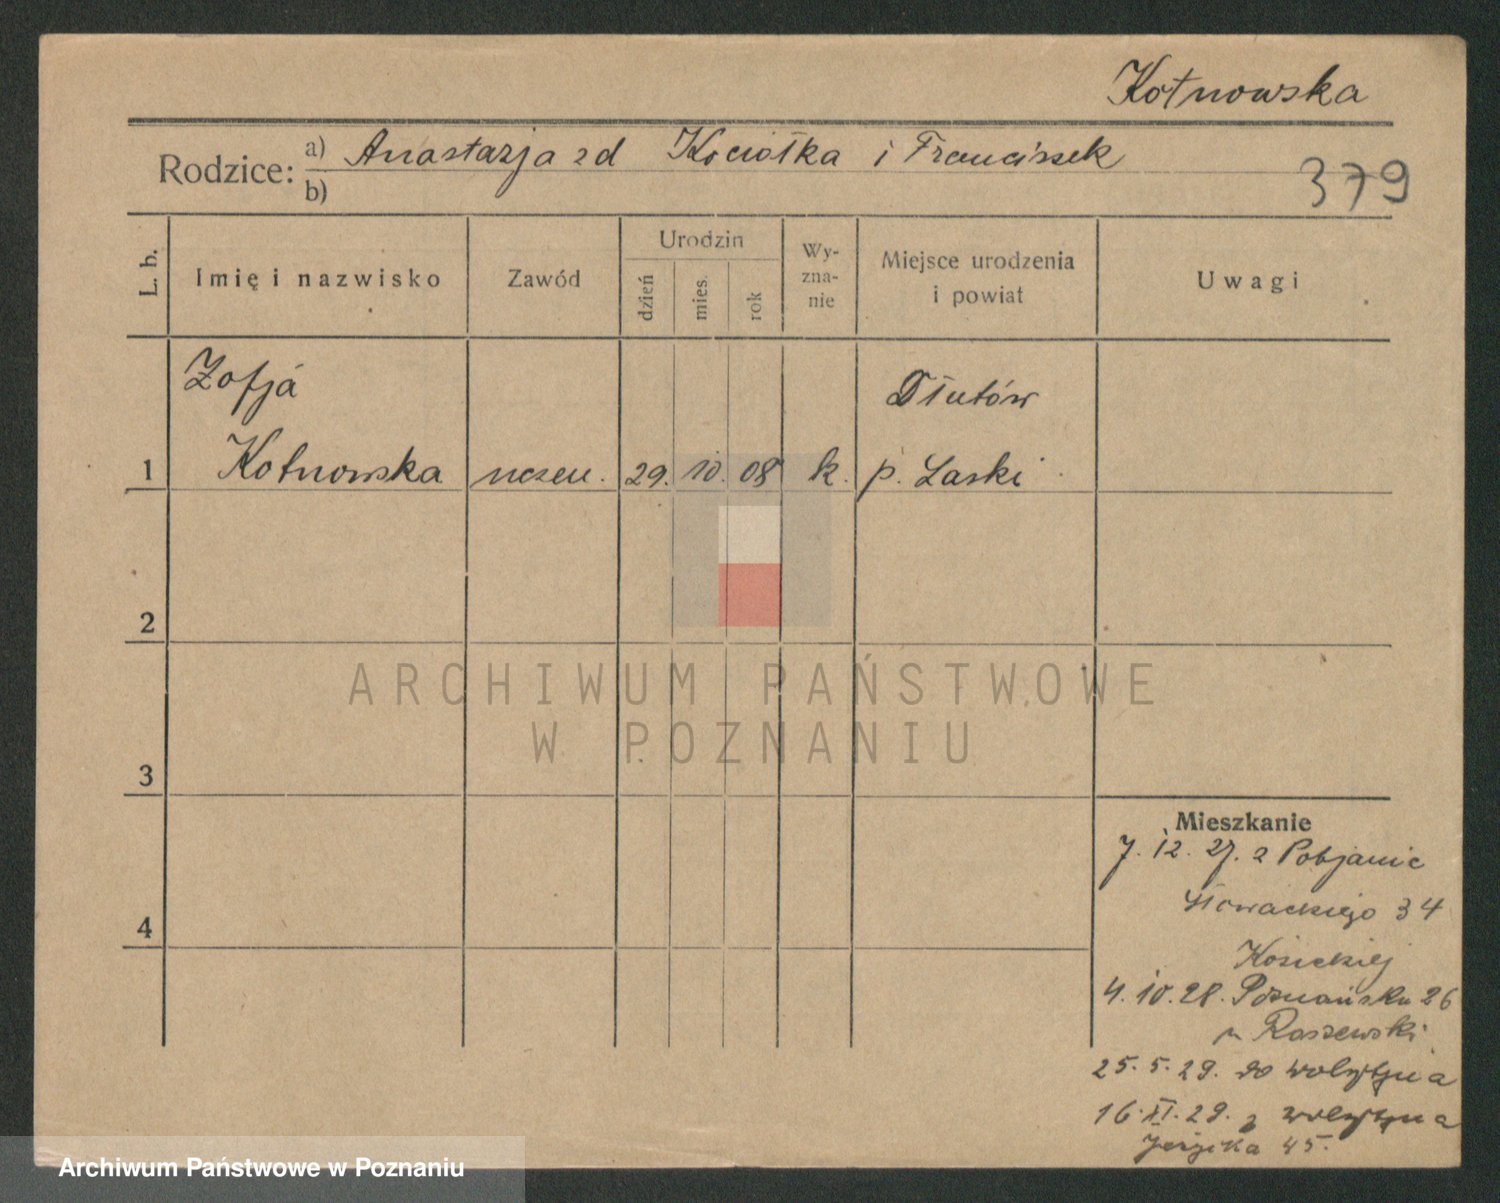 Kotnowska
Rodzice: a) Anastazja zd Kociołka i Franciszek
b)
379
L. b.
Imię i nazwisko
Zawód
Urodzin
dzień
mies.
rok
Wy-
zna-
nie
Miejsce urodzenia
i powiat
Uwagi
Zofja
Kotnowska
1
uczen.
29. 10. 08
k.
Dłutów
p. Laski
2
3
4
Mieszkanie
7. 12. 27. z Pabjanic
Słowackiego 34
Kosickiej
4. 10. 28. Poznańska 26
Raszewski
25. 5. 29. do
16. XI. 29. z
45.
ARCHIWUM PAŃSTWOWE
W POZNANIU
Archiwum Państwowe w Poznaniu